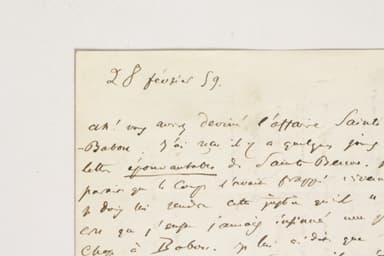 28 février 59.
ah! vous avez deviné l'affaire Sainte
-Babou. J'ai reçu il y a quelques jours
lettre épouvantable de Sainte-Beuve.
paraît que le coup l'avait frappé vivement
je dois lui rendre cette justice qu'il
cru que j'eusse jamais
chose à Babou. Je lui ai dit que